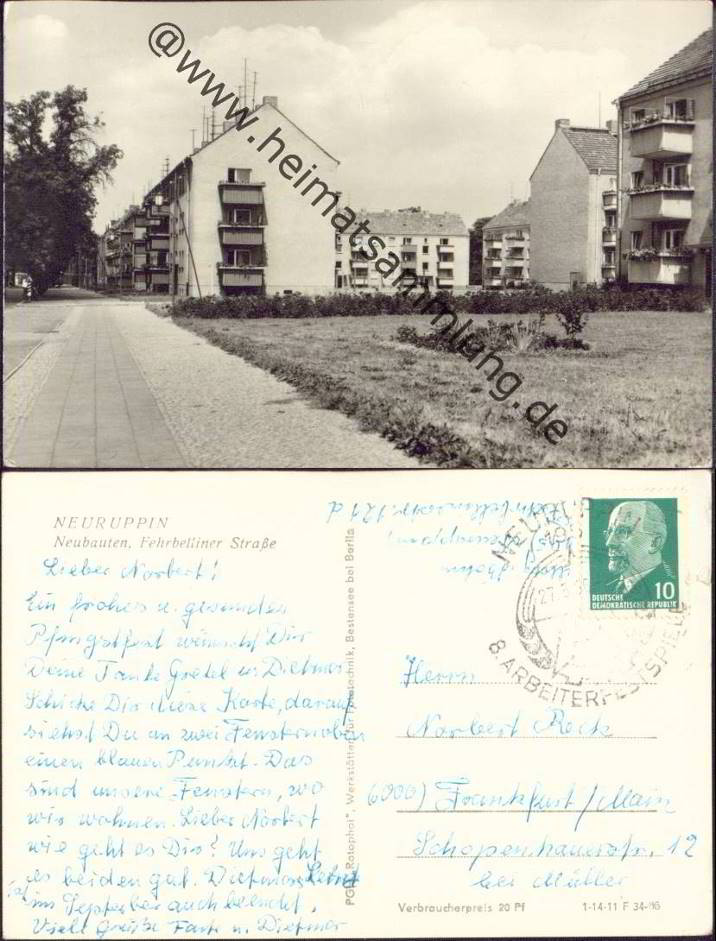 @www.heimatsammlung.de
NEURUPPIN
Neubauten, Fehrbelliner Straße
Lieber Norbert!
Ein frohes u. gesundes
Pfingstfest wünscht Dir
Deine Tante Gretel u. Dietmar
Schicke Dir diese Karte, darauf
siehst Du an zwei Fenstern oben
einen blauen Punkt. Das
sind unsere Fenstern, wo
wir wohnen. Lieber Norbert
wie geht es Dir? Uns geht
es beiden gut. Dietmars Lehre
ist im September auch beendet.
Viele Grüße Tante u. Dietmar
PGH "Rotophot", Werkstätten für Fototechnik, Bestensee bei Berlin
NEURUPPIN
8. ARBEITERFESTSPIELE
10
DEUTSCHE
DEMOKRATISCHE REPUBLIK
Herrn
Norbert
6000) Frankfurt / Main
Schopenhauerstr. 12
bei Müller
Verbraucherpreis 20 Pf
1-14-11 F 34-